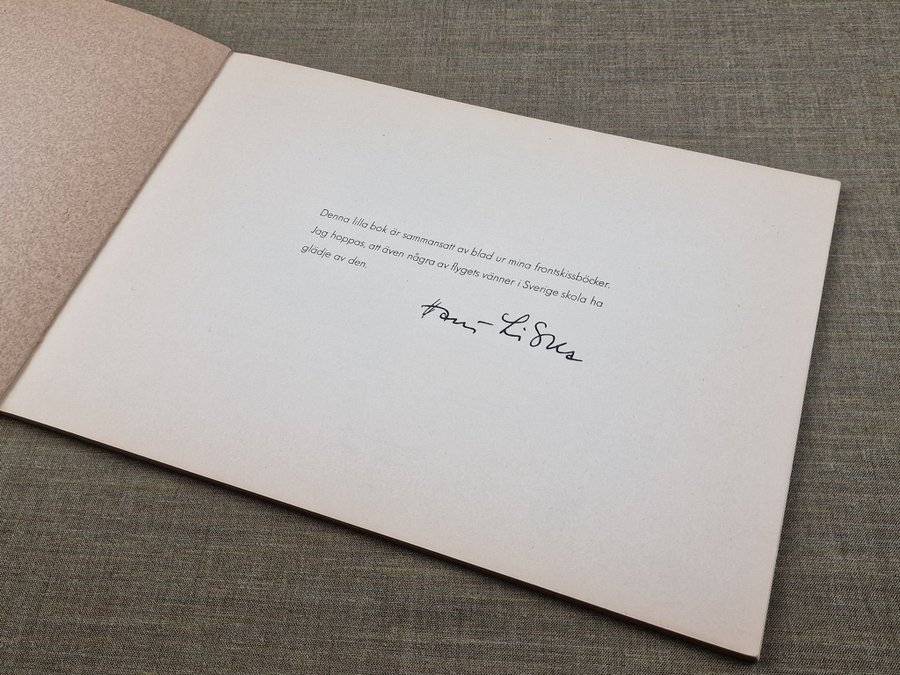 Denna lilla bok är sammansatt av blad ur mina frontskissböcker.
Jag hoppas, att även några av flygets vänner i Sverige skola ha
glädje av den.
Hans Liska